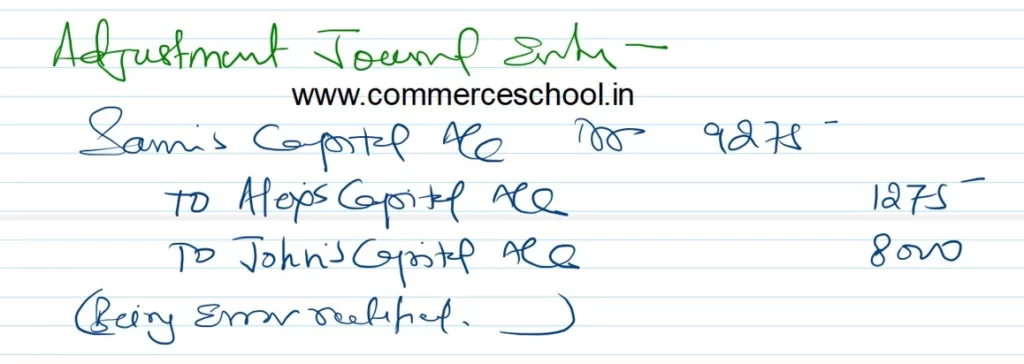 Adjustment Journal Entry —
www.commerceschool.in
Sam's Capital A/c Dr 9275 -
To Alex's Capital A/c 1275 -
To John's Capital A/c 8000
(Being Error rectified. )